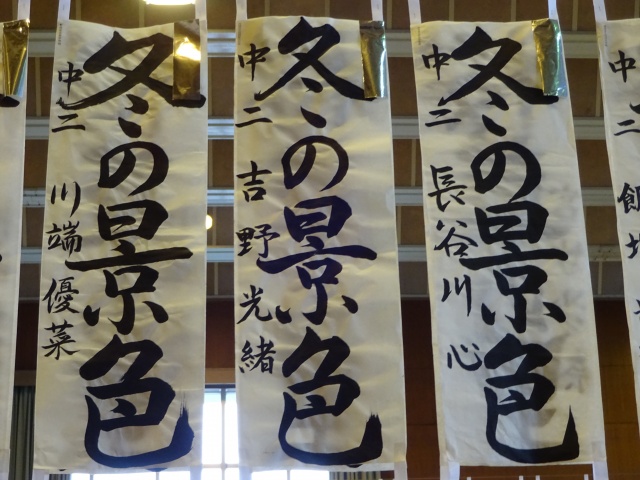 冬の景色
中二 長谷川心
冬の景色
中二 吉野光緒
冬の景色
中二 川端優菜
中二